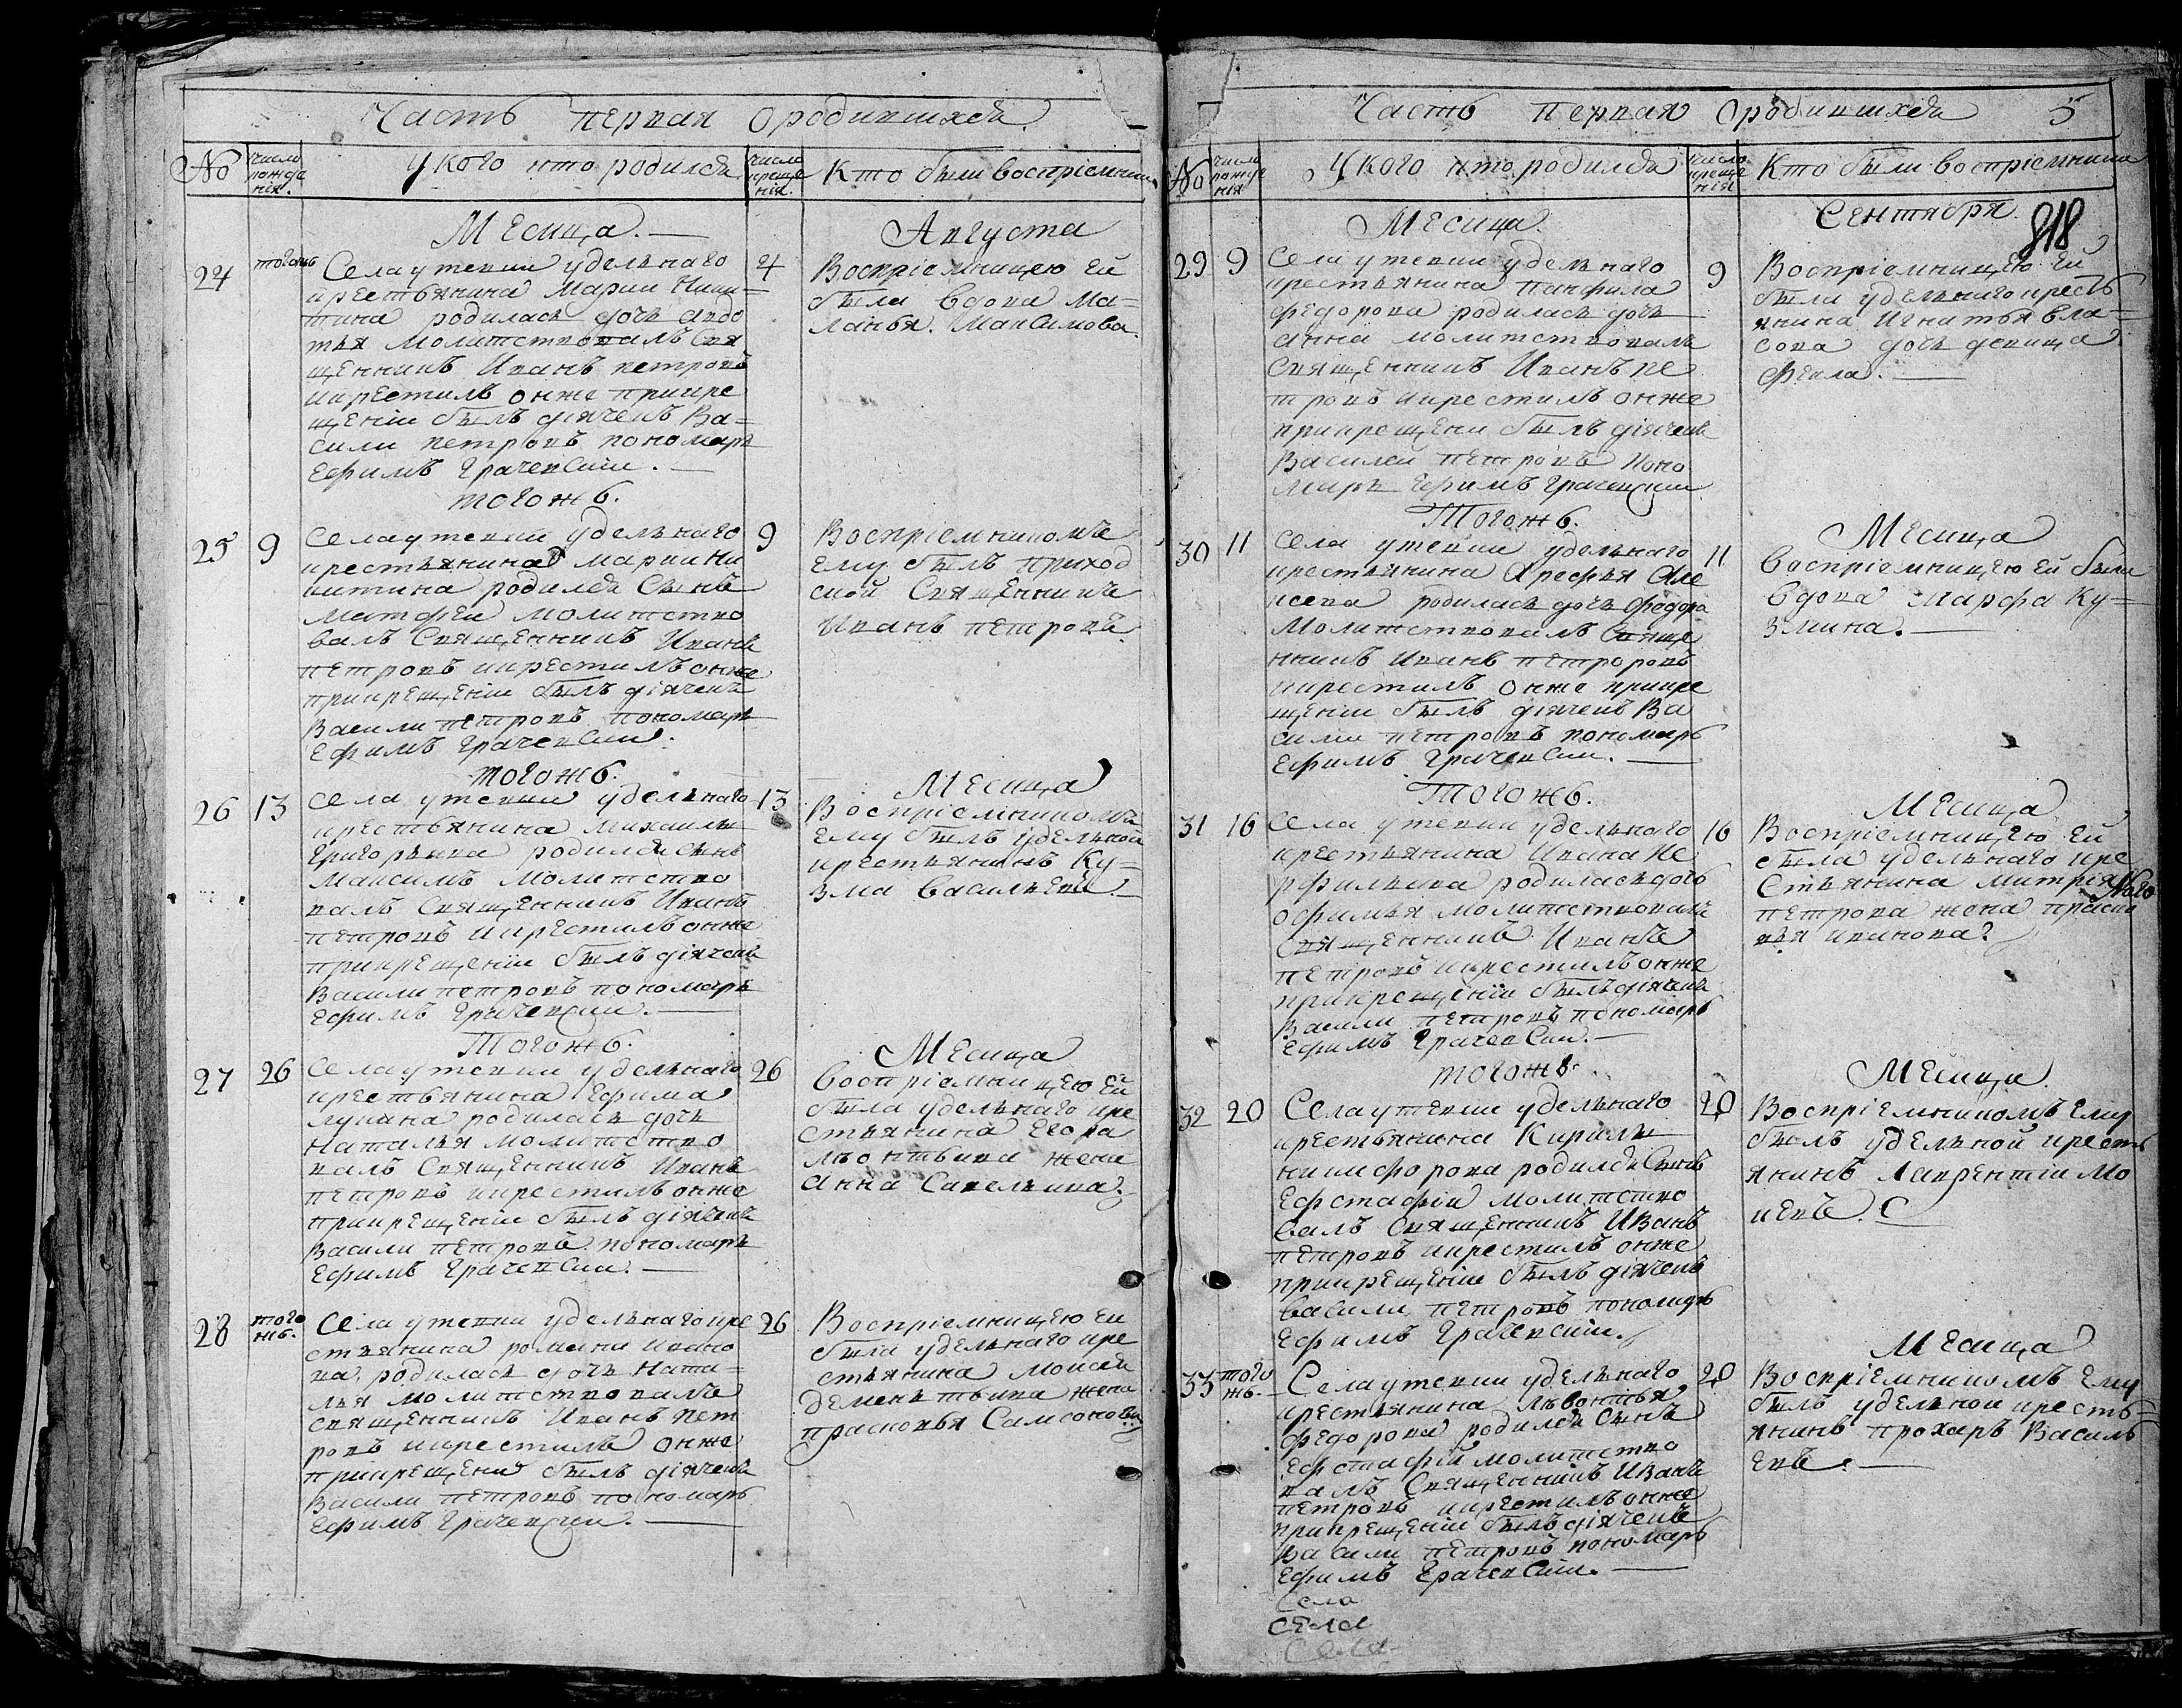 Часть первая ородившихся
№ число рожде нія.
У кого кто родился
число креще нія.
Кто были восприемники
Месица.
Августа
24 тогожъ 4
Села утевки удельнаго
крестьянина Марки Ники-
тина родилась дочь Авдо
тья молитствовалъ Свя
щенникъ Иванъ петровъ
икрестилъ онже прикре
щеніи былъ діячекъ Ва-
сили петровъ пономарь
Ефимъ Грачевскіи.
Воспріемницею Ей
была вдова Ма-
ланья Максимова
тогожъ.
25 9 9
Села утевки удельнаго
крестьянина Марки Ни
китина родился Сынъ
Матфеи молитство
валъ Священникъ Иванъ
петровъ икрестилъ онже
прикрещеніи былъ діячекъ
Васили петровъ пономарь
Ефимъ Грачевскіи.
Воспріемникомъ
Ему былъ приход
ской Священникъ
Иванъ петровъ
тогожъ.
Месица
26 13 13
Села утевки удельнаго
крестьянина Михаилы
Григорьева родился сынъ
Максимъ Молитство
валъ Священникъ Иванъ
петровъ икрестилъ онже
прикрещеніи былъ діячекъ
Васили петровъ пономарь
Ефимъ Грачевскіи.
Воспріемникомъ
Ему былъ удельной
крестьянинъ Ку-
зма Васильевъ.
Тогожъ.
Месица
27 26 26
Села утевки удельнаго
крестьянина Ефима
Лукина родилась дочь
Наталья молитство
валъ Священникъ Иванъ
петровъ икрестилъ онже
прикрещеніи былъ діячекъ
Васили петровъ пономарь
Ефимъ Грачевскіи.
Воспріемницею Ей
была удельнаго кре
стьянина Егора
Леонтьива жена
Анна Савельива.
28 того жъ. 26
Села утевки удельнаго кре
стьянина романи ивано
ва родилась дочь Ната-
лья молитствовалъ
священникъ Иванъ пет
ровъ икрестилъ онже
прикрещени былъ діячекъ
Васили петровъ пономарь
Ефимъ Грачевскіи.
Воспріемницею Ей
была удельнаго кре
стьянина Моисея
Деменьтьива жена
прасковья Самсонова
Часть первая ородившихся 5
№ число рожде нія
У кого кто родился
число креще нія
Кто были воспріемники
Месица.
Сентября
818
29 9 9
Села утевки удельнаго
крестьянина Панфила
федорова родилась дочь
Анна молитствовалъ
Священникъ Иванъ пе
тровъ икрестилъ онже
прикрещени былъ діячекъ
Василеи петровъ поно
марь Ефимъ Грачевскіи
Воспріемницею Ей
была удельнаго кресть
янина Игнатья Вла-
сова дочь девица
Фекла.
Тогожъ.
Месица
30 11 11
Села утевки удельнаго
крестьянина Арефья Але
ксеева родилась дочь Федора
Молитствовалъ Свяще
нникъ Иванъ петроровъ
икрестилъ онже прикре
щеніи былъ діячекъ Ва
сили петровъ пономарь
Ефимъ Грачевскіи.
Воспріемницею Ей была
вдова Марфа Ку-
змина.
Тогожъ.
Месица
31 16 16
Села утевки удельнаго
крестьянина Ивана Пе
рфильива родилась дочь
офимья молитствовалъ
Священникъ Иванъ
петровъ икрестилъ онже
прикрещеніи былъ діячекъ
Васили петровъ пономарь
Ефимъ Грачевскіи.
Воспріемницею Ей
была удельнаго кре
стьянина Митрія
петрова жена праско
вья иванова.
тогожъ.
Месица.
32 20 20
Села утевки удельнаго
крестьянина Кирилы
никифорова родился Сынъ
Ефстафіи молитство
валъ Священникъ Иванъ
петровъ икрестилъ онже
прикрещеніи былъ діячекъ
Васили петровъ пономарь
Ефимъ Грачевскіи.
Воспріемникомъ Ему
былъ удельной кресть
янинъ Лаврентіи Мо
кевъ.
Месица
33 того жъ. 20
Села утевки удельнаго
крестьянина Львонтья
федорова родился Сынъ
Ефстафій молитство
валъ Священникъ Иванъ
петровъ икрестилъ онже
прикрещеніи былъ діячекъ
Васили петровъ пономарь
Ефимъ Грачевскіи.
Воспріемникомъ Ему
былъ удельнои кресть-
янинъ прохаръ Василь
Евъ.
Села
Села
Села